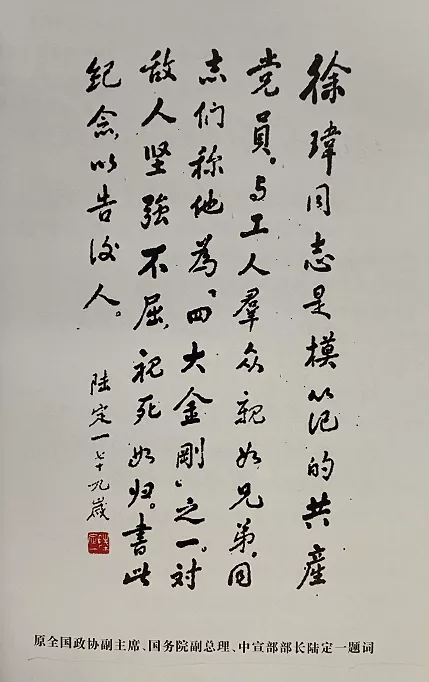 徐瑋同志是模範的共產
党員。与工人羣众親如兄弟，同
志们称他為「四大金剛」之一。对
敌人坚強不屈，視死如归。書此
紀念，以告後人。
陆定一七十九歲
原全国政协副主席、国务院副总理、中宣部部长陆定一题词